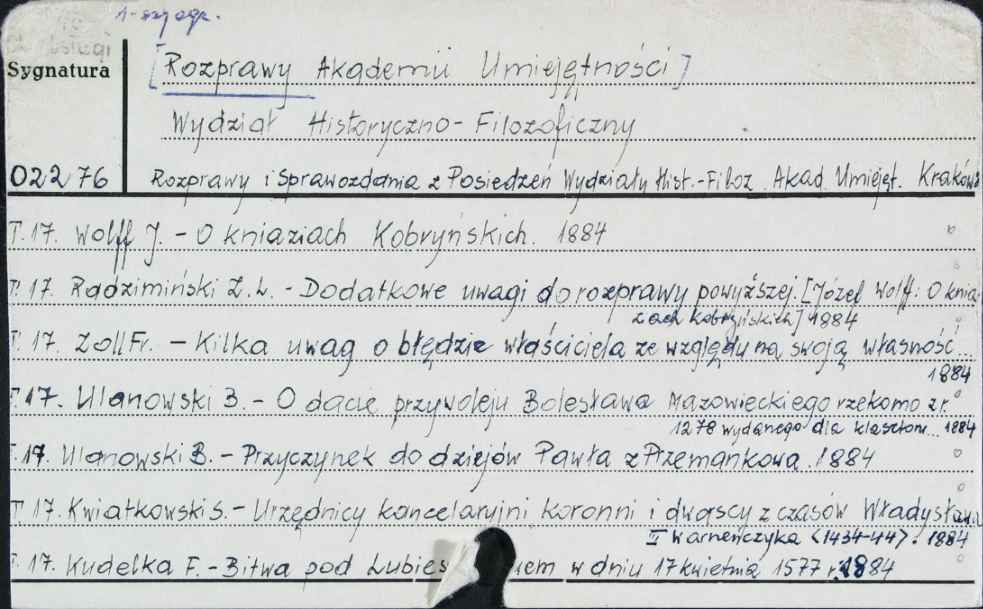 1-szy egz.
Sygnatura
[Rozprawy Akademii Umiejętności]
Wydział Historyczno-Filozoficzny
02276
Rozprawy i Sprawozdania z Posiedzeń Wydziału Hist.-Filoz. Akad. Umiejęt. Kraków
T.17. Wolff J. - O kniaziach Kobryńskich. 1884
T.17. Radzimiński Z.L. - Dodatkowe uwagi do rozprawy powyższej. [Józef Wolff: O knia-
ziach Kobryńskich] 1884
T.17. Zoll Fr. - Kilka uwag o błędzie właściciela ze względu na swoją własność...
1884
T.17. Ulanowski B. - O dacie przywileju Bolesława Mazowieckiego rzekomo z r.
1278 wydanego dla klasztoru... 1884
T.17. Ulanowski B. - Przyczynek do dziejów Pawła z Przemankowa. 1884
T.17. Kwiatkowski S. - Urzędnicy kancelaryjni koronni i dworscy z czasów Władysława
III Warneńczyka (1434-44). 1884
T.17. Kudelka F. - Bitwa pod w dniu 17 kwietnia 1577 r. 1884